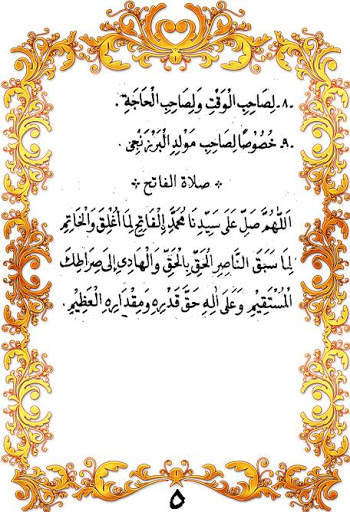 ٨. لِصَاحِبِ الْوَقْتِ وَلِصَاحِبِ الْحَاجَةِ.
٩. خُصُوْصًا لِصَاحِبِ مَوْلِدِ الْبَرْزَنْجِى.
* صلاة الفاتح *
اَللّٰهُمَّ صَلِّ عَلَى سَيِّدِنَا مُحَمَّدٍ اِلْفَاتِحِ لِمَا أُغْلِقَ وَالْخَاتِمِ
لِمَا سَبَقَ النَّاصِرِ الْحَقِّ بِالْحَقِّ وَالْهَادِى اِلَى صِرَاطِكَ
الْمُسْتَقِيْمِ وَعَلَى اٰلِهِ حَقَّ قَدْرِهِ وَمِقْدَارِهِ الْعَظِيْمِ.
٥